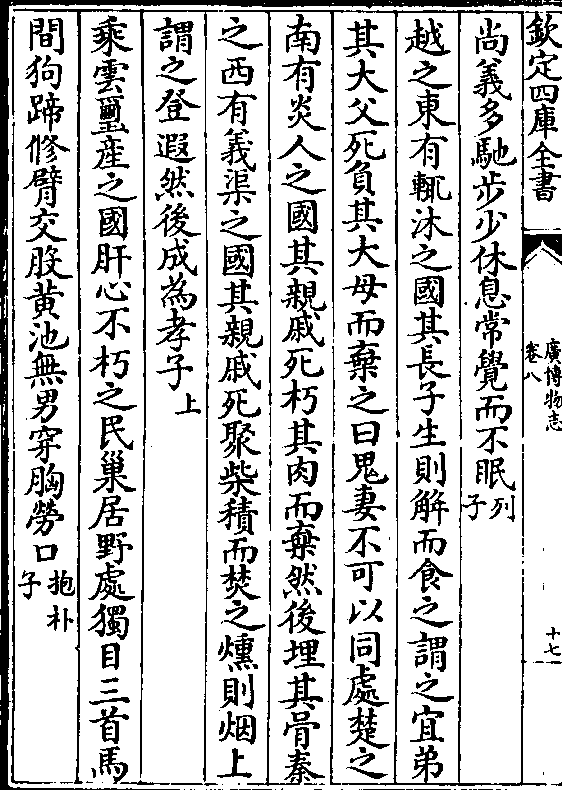 欽定四庫全書
廣博物志
卷八
十七
尚義多馳步少休息常覺而不眠列子
越之東有輒沐之國其長子生則解而食之謂之宜弟
其大父死負其大母而棄之曰鬼妻不可以同處楚之
南有炎人之國其親戚死朽其肉而棄然後埋其骨秦
之西有義渠之國其親戚死聚柴積而焚之燻則烟上
謂之登遐然後成為孝子上
乘雲璽産之國肝心不朽之民巢居野處獨目三首馬
間狗蹄修臂交股黄池無男穿胸勞口抱朴子